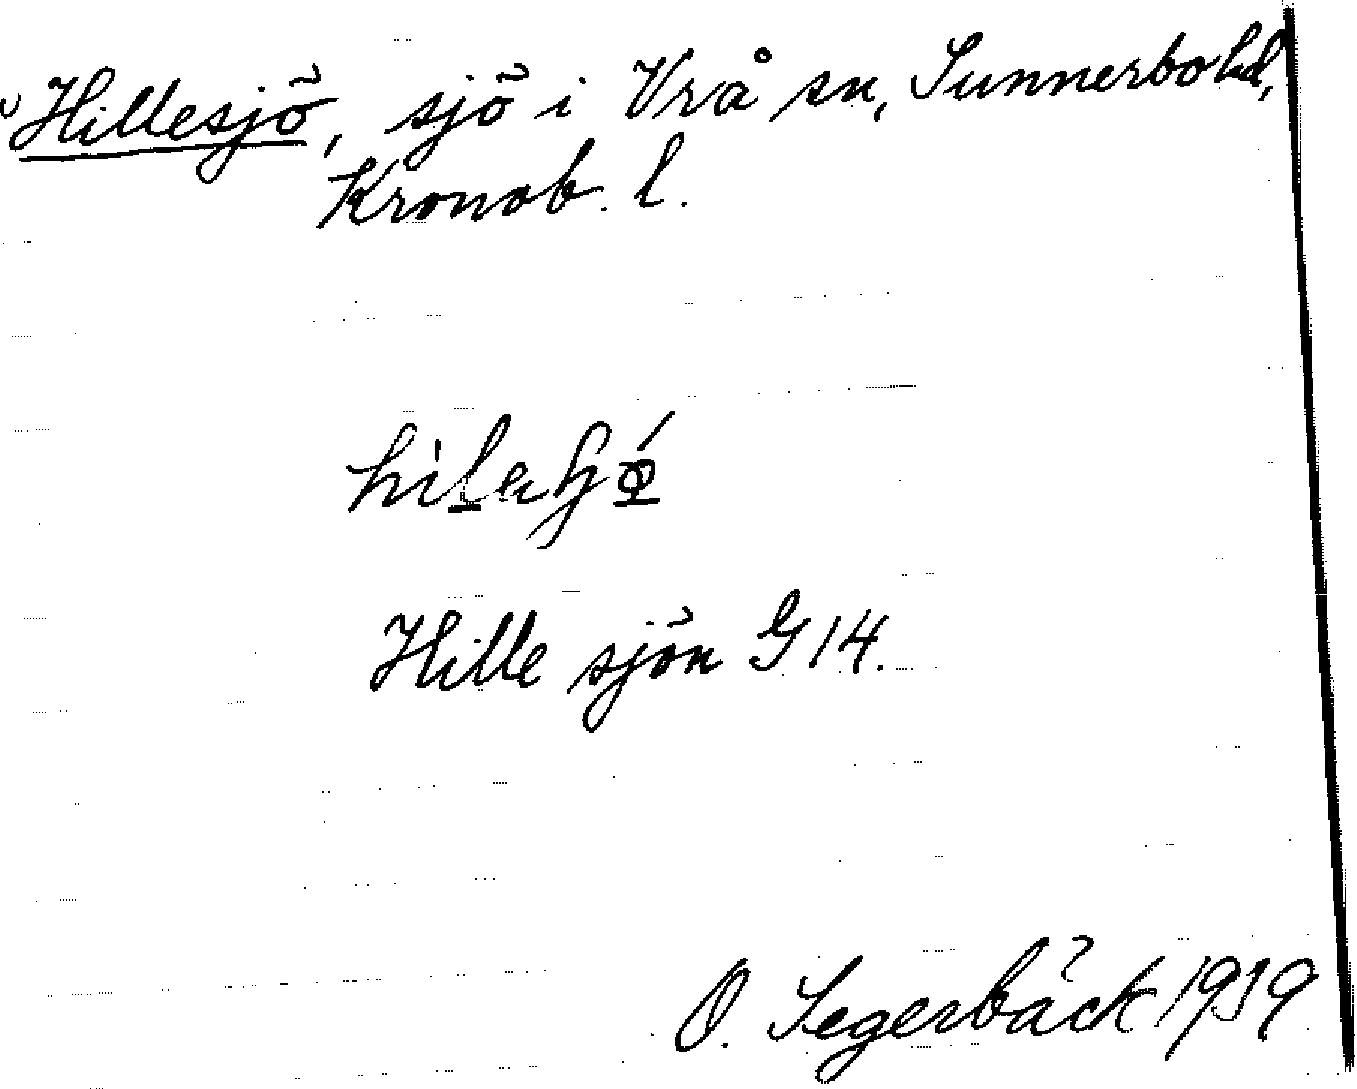 Hillesjö, sjö i Vrå sn, Sunnerbo hd,
Kronob. l.
Hille sjön G 14.
O. Segerbäck 1939